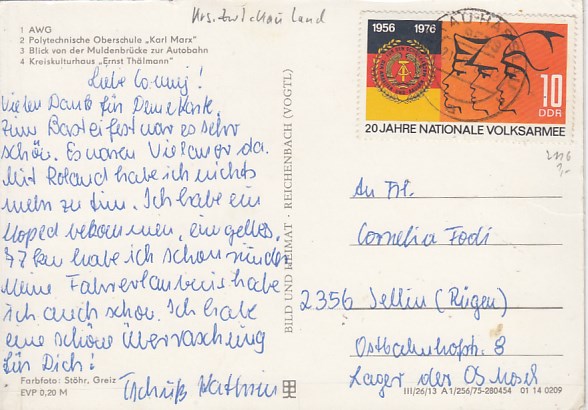 Krs. Zwickau Land
1 AWG
2 Polytechnische Oberschule „Karl Marx"
3 Blick von der Muldenbrücke zur Autobahn
4 Kreiskulturhaus „Ernst Thälmann"
Liebe Conny!
Vielen Dank für Deine Karte.
Zum Basteifest war es sehr
schön. Es waren Viel da.
Mit Roland habe ich nichts
mehr zu tun. Ich habe ein
Moped bekommen, ein gelbes.
77 km habe ich schon runter
Meine Fahrerlaubnis habe
ich auch schon. Ich habe
eine schöne Überraschung
für Dich!
Tschüß Kathrin
Farbfoto: Stöhr, Greiz
EVP 0,20 M
BILD UND HEIMAT · REICHENBACH (VOGTL)
1956 1976
10
DDR
20 JAHRE NATIONALE VOLKSARMEE
An Frl.
Cornelia Fodi
2356 Sellin (Rügen)
Ostbahnhofstr. 8
Lager der OS Mosel
III/26/13 A 1/256/75-280454 01 14 0209